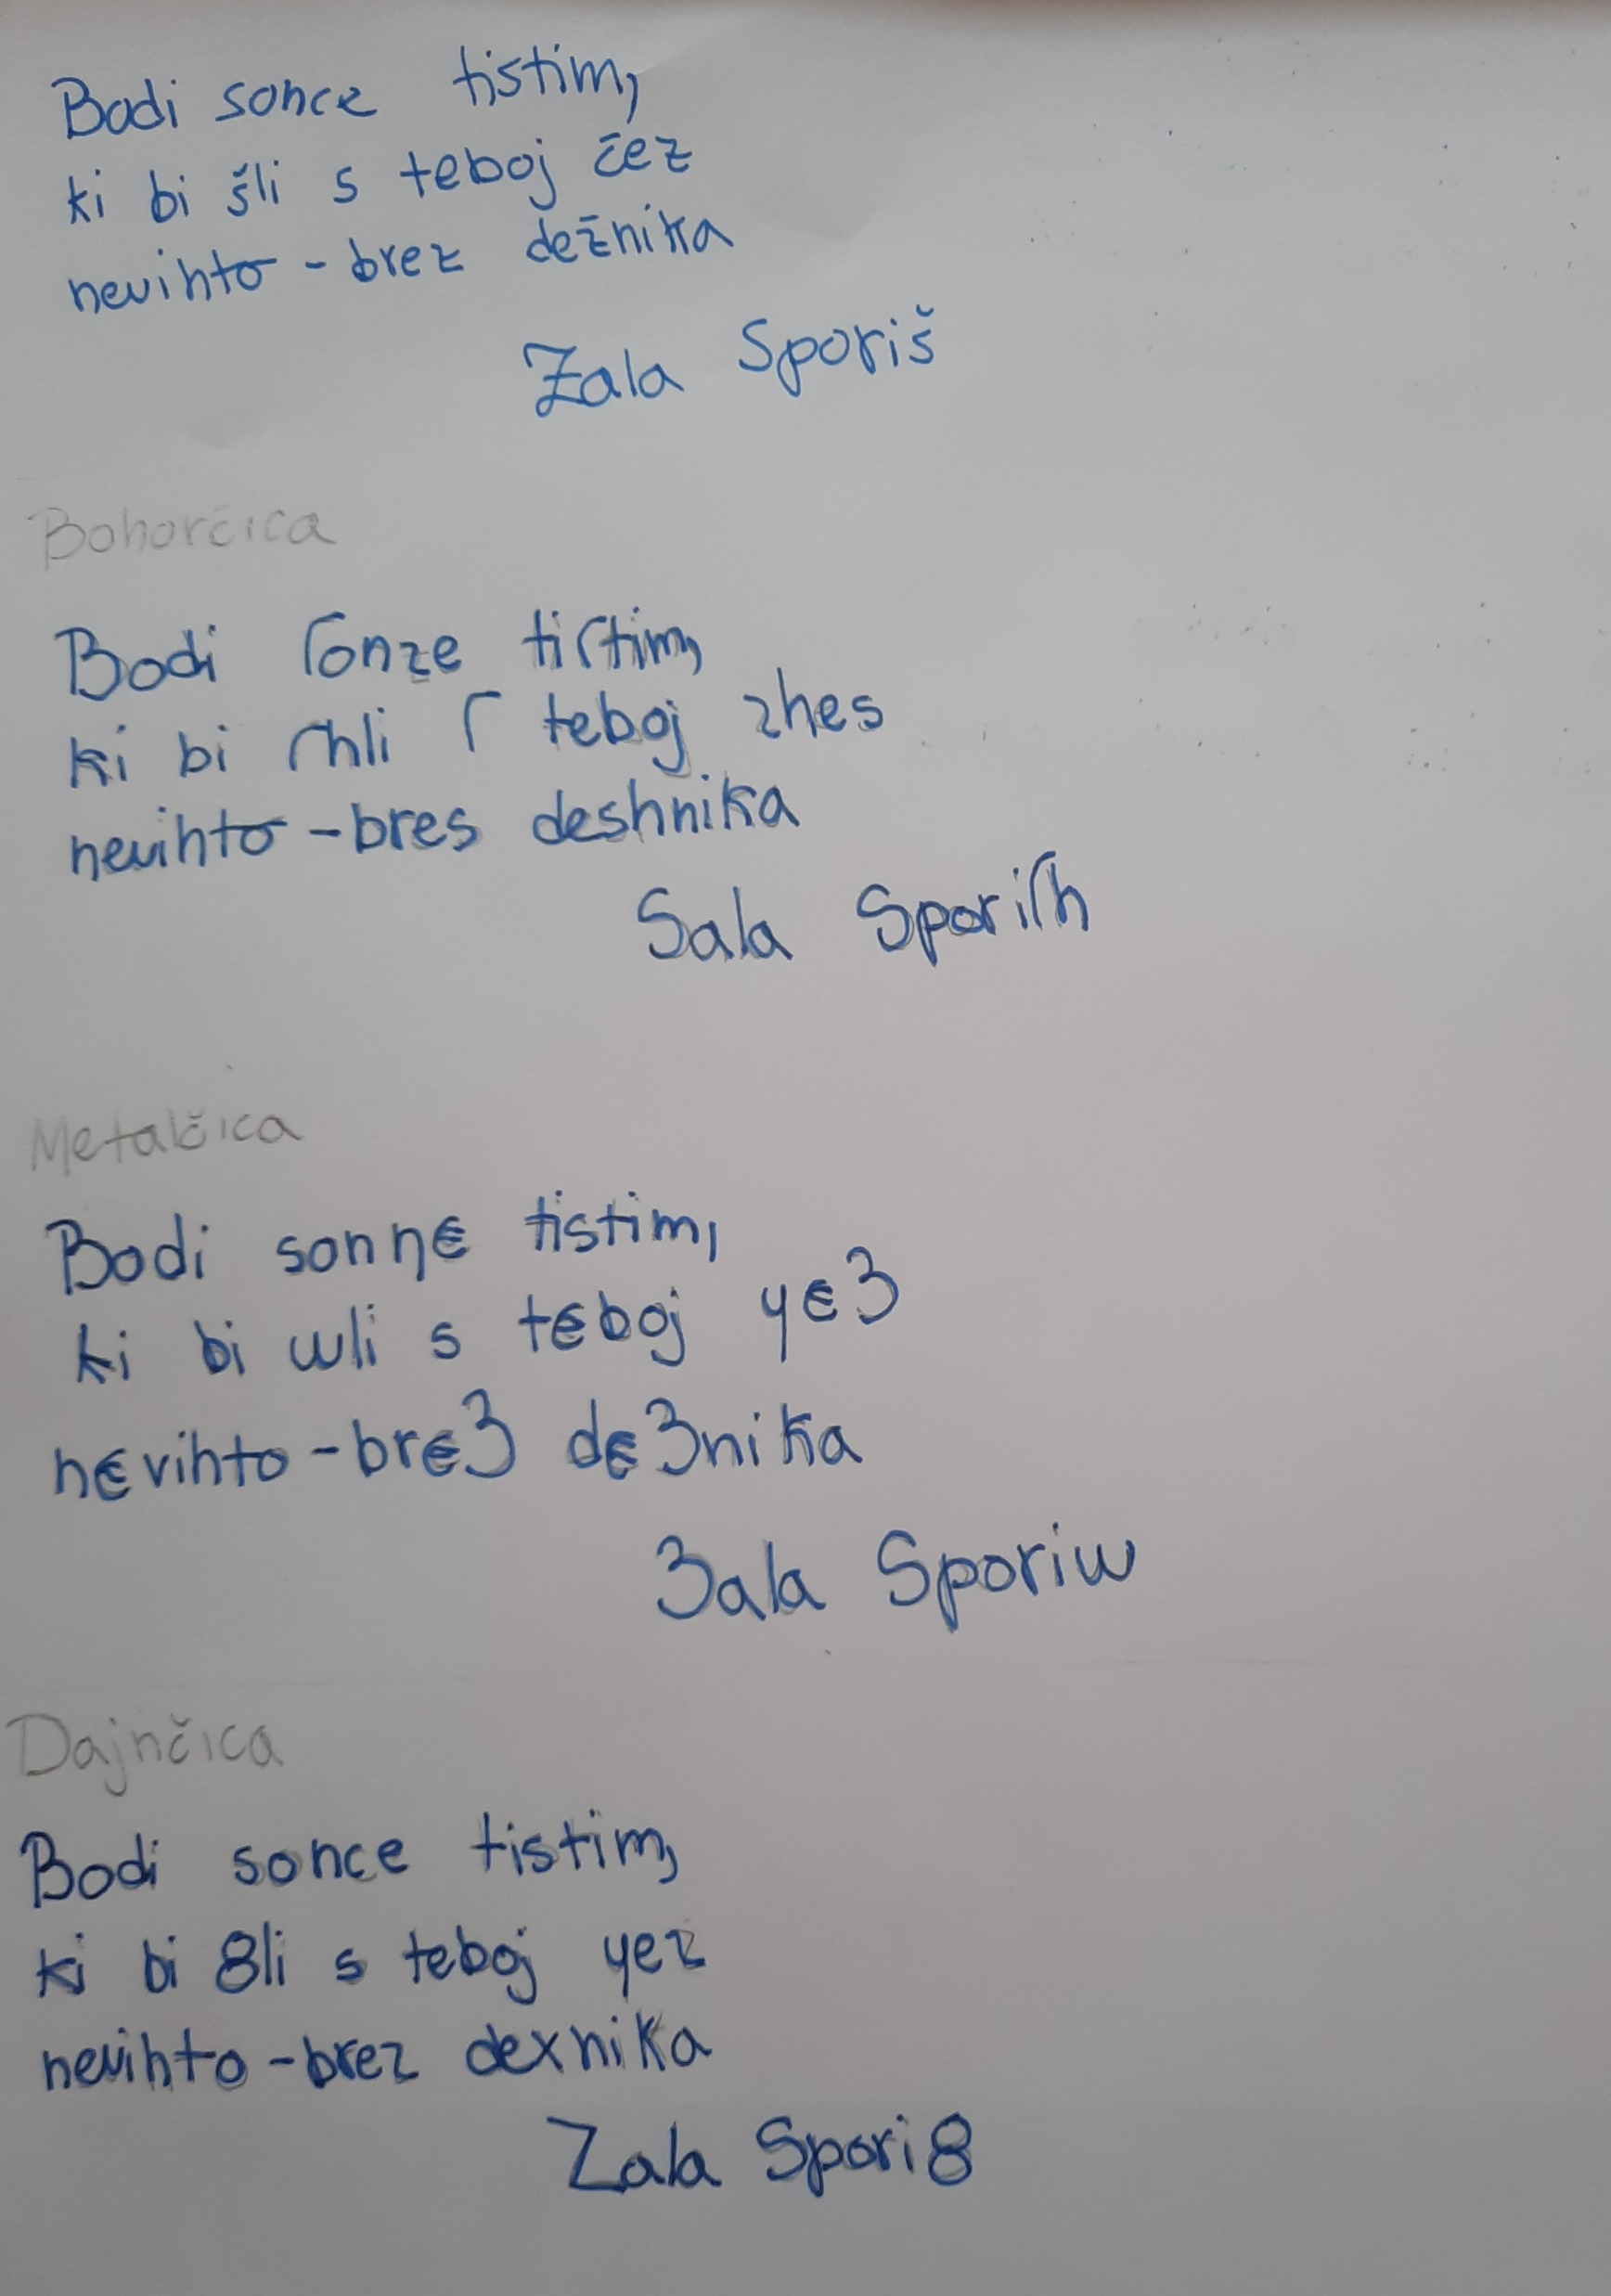 Bodi sonce tistim,
ki bi šli s teboj čez
nevihto - brez dežnika
Zala Sporiš
Bohorčica
Bodi ſonze tiſtim,
ki bi ſhli ſ teboj zhes
nevihto - bres deshnika
Sala Sporiſh
Metalčica
Bodi sonηɛ tistim,
ki bi ɯli s tɛboj yɛ3
nɛvihto - brɛ3 dɛ3nika
3ala Sporiɯ
Dajnčica
Bodi sonce tistim,
ki bi 8li s teboj yez
nevihto - brez dexnika
Zala Spori8